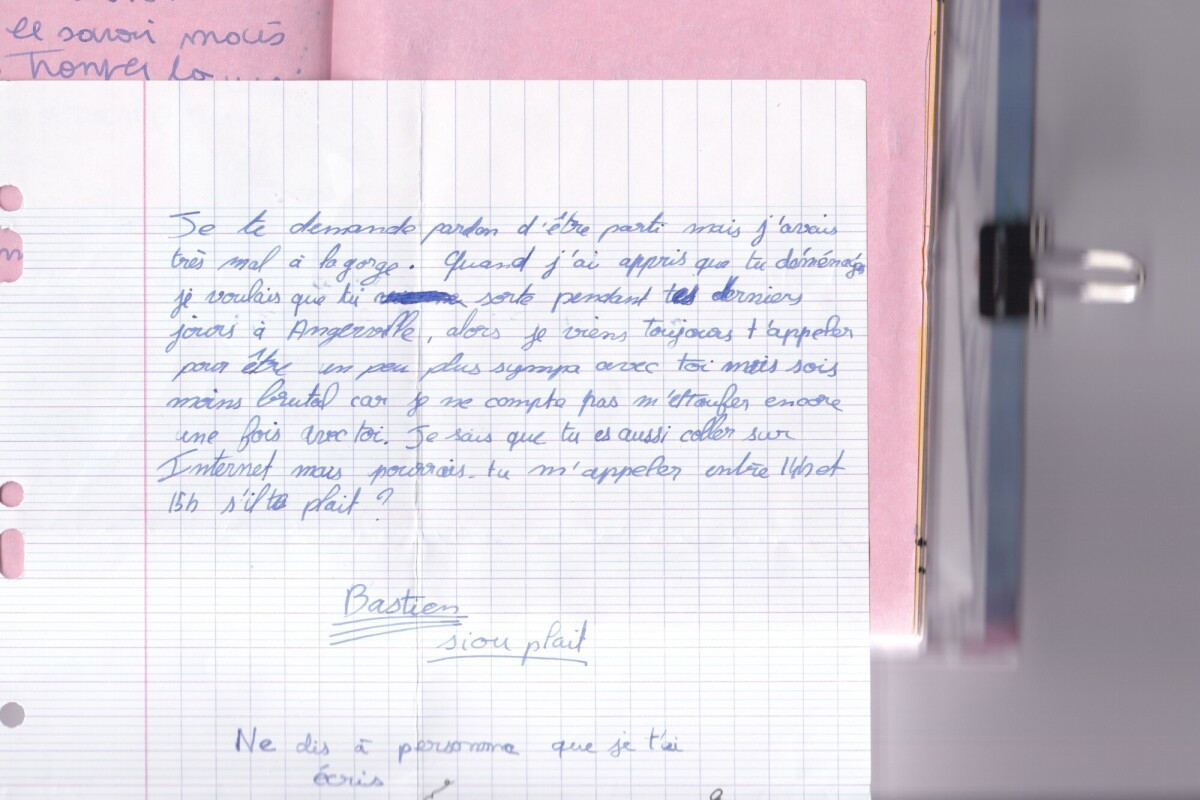 ee savoir mais
Trouver la
Je te demande pardon d'être parti mais j'avais
très mal à la gorge. Quand j'ai appris que tu déménages
je voulais que tu sorte pendant tes derniers
jours à Angerville, alors je viens toujours t'appeler
pour être un peu plus sympa avec toi mais sois
moins brutal car je ne compte pas m'étoufer encore
une fois avec toi. Je sais que tu es aussi coller sur
Internet mais pourrais-tu m'appeler entre 14h et
15h s'il te plait ?
Bastien
siou plait
Ne dis à personne que je t'ai
écris